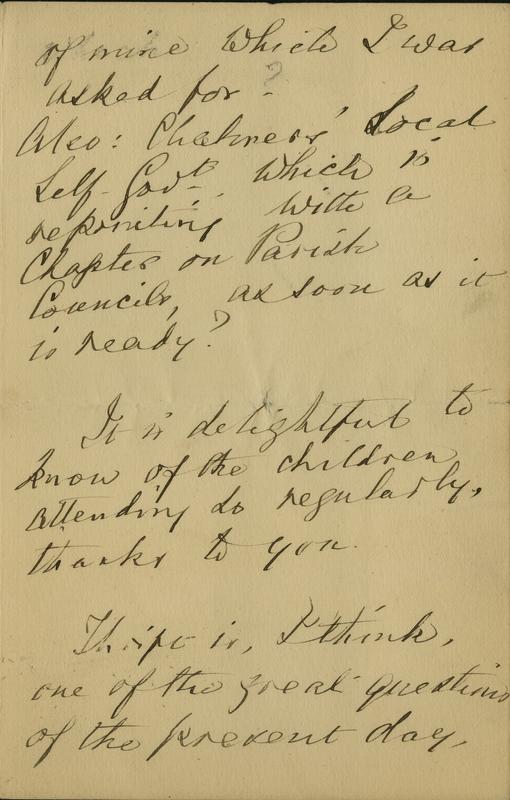 of mine which I was
asked for - ?
Also: Chalmers' Local
Self-Govt. which is
reprinting with a
Chapter on Parish
Councils, as soon as it
is ready?
It is delightful to
know of the children
attending so regularly,
thanks to you.
Thrift is, I think,
one of the great questions
of the present day,